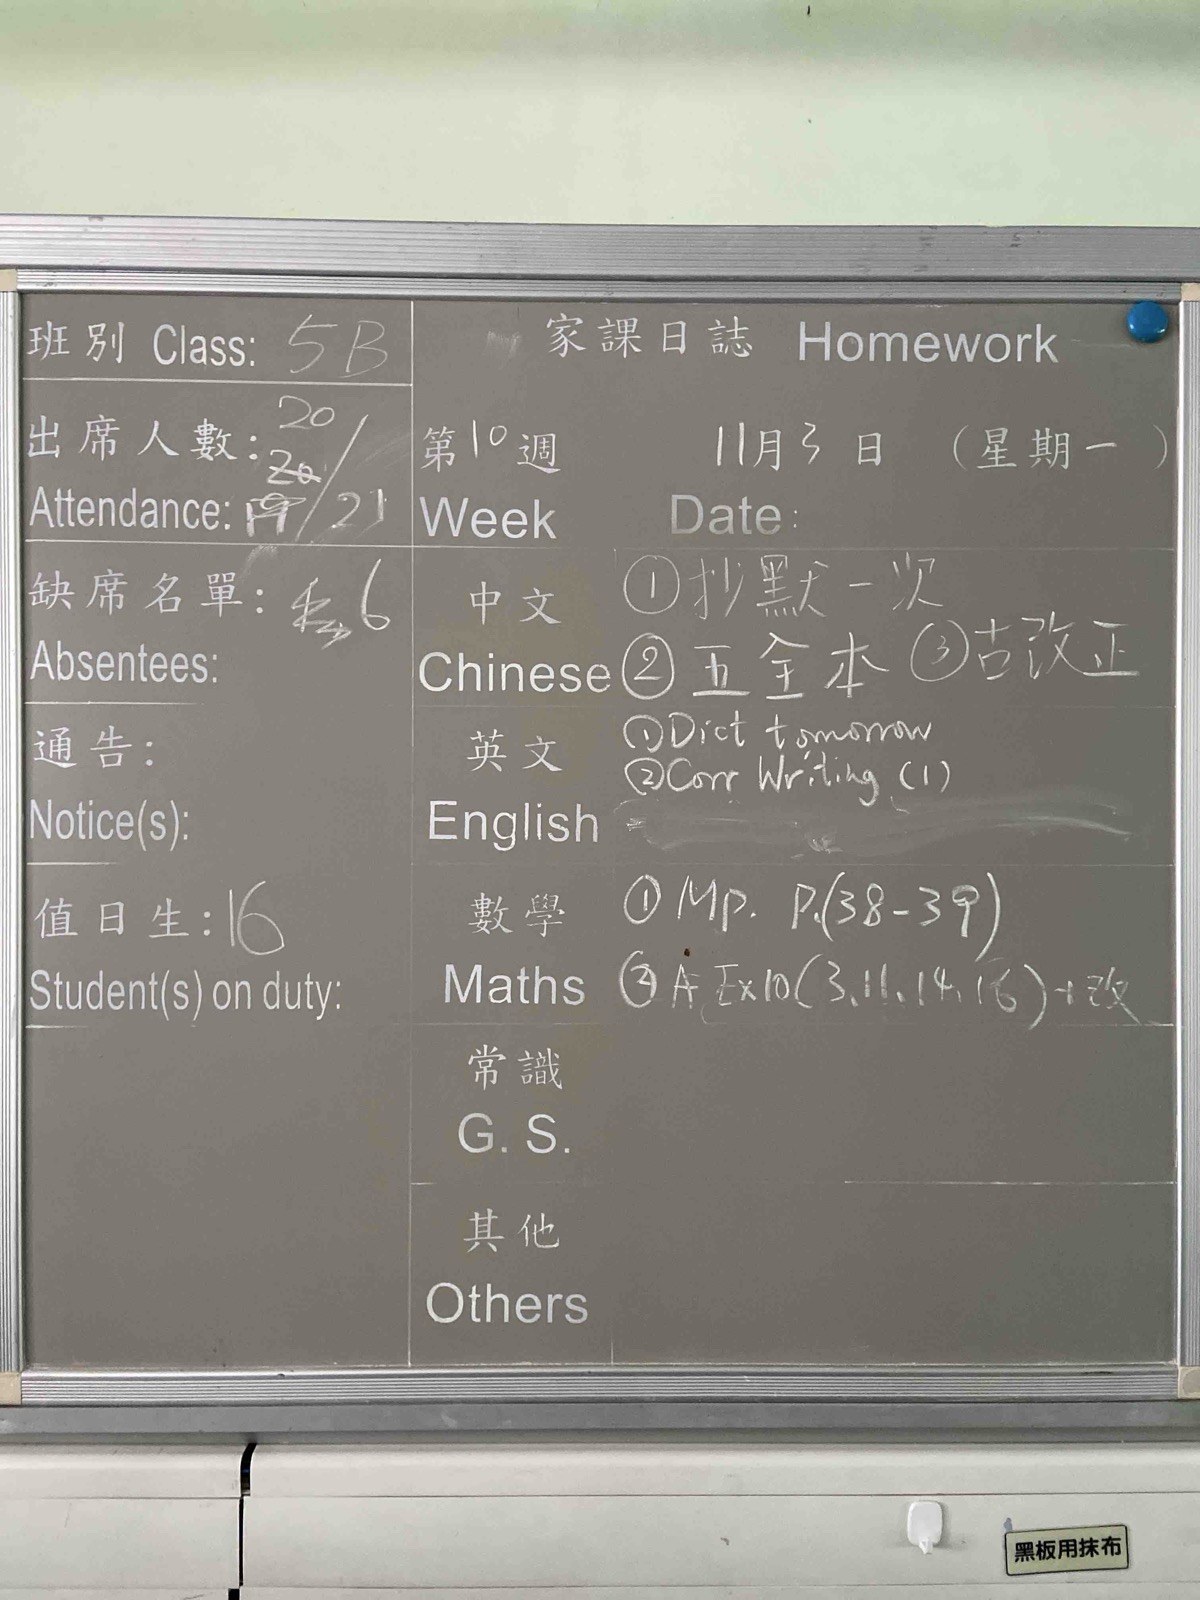 班別 Class: 5B
出席人數: 20
20
Attendance: 19/21
缺席名單: 6
Absentees:
通告:
Notice(s):
值日生: 16
Student(s) on duty:
家課日誌 Homework
第10週 11月3日 (星期一)
Week Date:
中文 ①抄默一次
Chinese ②五全本 ③古改正
英文 ①Dict tomorrow
②Corr Writing (1)
English
數學 ①Mp. P.(38-39)
Maths ② A Ex10(3.11.14.16)+改
常識
G. S.
其他
Others
黑板用抹布